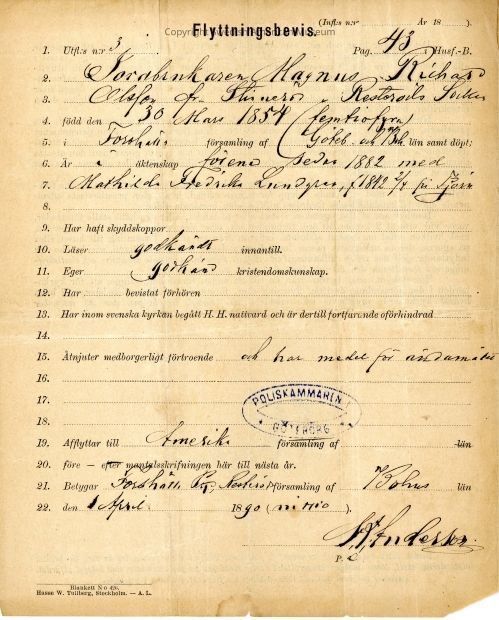 (Infl: n:r År 18 ).
Flyttningsbevis.
1. Utfl: n:r 3 Pag. 43 i Husf.-B.
2. Jordbrukaren Magnus Richard
3. Olsson fr. Resteröds Socken
4. född den 30 Mars 1854 (femtiofyra)
5. i Forshälla församling af Göteb. och Boh. län samt döpt;
6. Är i äktenskap förena sedan 1882 med
7. Mathilda Fredrika Lundgren, f 1842 fr Tjörn
8.
9. Har haft skyddskoppor
10. Läser godkändt innantill.
11. Eger godkänd kristendomskunskap.
12. Har bevistat förhören
13. Har inom svenska kyrkan begått H. H. nattvard och är dertill fortfarande oförhindrad
14.
15. Åtnjuter medborgerligt förtroende och har medel för ändamålet
16.
17.
POLISKAMMAREN
GÖTEBORG
18.
19. Afflyttar till Amerika församling af län
20. före — efter mantalsskrifningen här till nästa år.
21. Betygar Forshälla församling af Bohus län
22. den 1 April 1890 (nittio)
Anderson
P.
Blankett N:o 420.
Hasse W. Tullberg, Stockholm. — A. L.